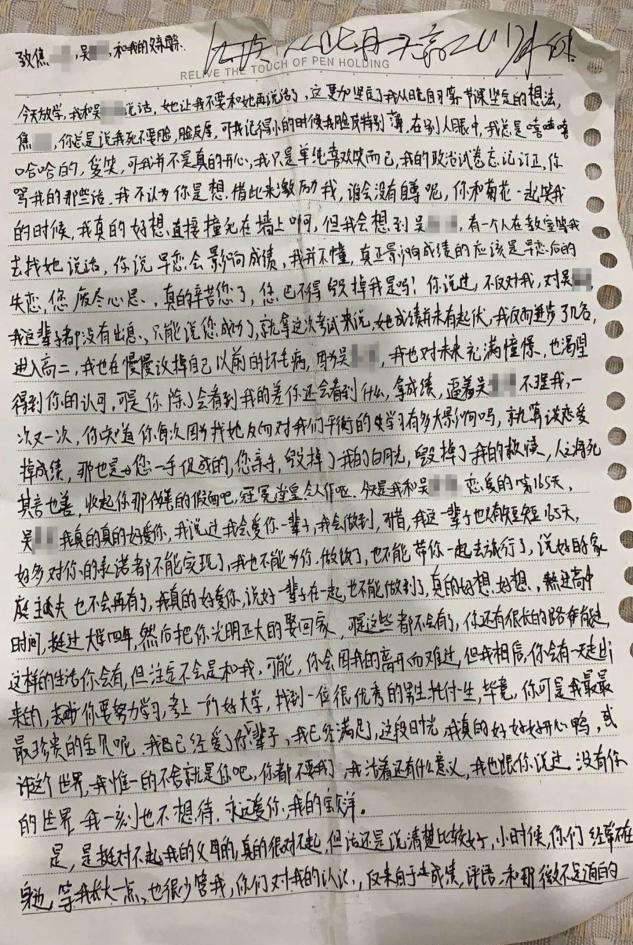 致焦 吴 ,和我的父母亲.
RELIVE THE TOUCH OF PEN HOLDING
今天放学,我和吴 说话,她让我不要和她再说话了,这更加坚定了我从晚自习第 节课坚定的想法,
焦 ,你总是说我死不要脸,脸皮厚,可我记得小的时候我脸皮特别薄,在别人眼中,我总是嘻嘻嘻
哈哈的,爱笑,可我并不是真的开心,我只是单纯喜欢笑而已,我的政治试卷忘记订正,你
骂我的那些话,我不认为你是想借此来激励我,谁会没有自尊呢,你和菊花一起笑我
的时候,我真的好想直接撞死在墙上啊,但我会想到吴 ,有一个人在教室等我
去找她说话,你说早恋会影响成绩,我并不懂,真正影响成绩的应该是早恋后的
失恋,您废尽心思,真的辛苦您了,您巴不得毁掉我是吗?你说过,不仅对我,对吴
我这辈子都没有出息,只能说您成功了,就拿这次考试来说,她成绩并未有起伏,我反而进步了几名,
进入高二,我也在慢慢改掉自己以前的坏毛病,因为吴 ,我也对未来充满憧憬,也渴望
得到你的认可,可是你除了会看到我的差你还会看到什么,拿成绩,逼着吴 不理我,一
次又一次,你知道你每次因为找她反而对我们平衡的 学习有多大影响吗,就算谈恋爱
掉成绩,那也是 您一手促成的,您亲手,毁掉了我的白月光,毁掉了我的救赎,人之将死
其言也善,收起你那伪善的假面吧,冠冕堂皇令人作呕.今天是我和吴 恋爱的第165天,
吴 我真的真的好爱你,我说过我会爱你一辈子,我会做到,可惜,我这一辈子也只有短短165天,
好多对你的承诺都不能实现了,我也不能为你做饭了,也不能带你一起去旅行了,说好的家
庭主夫也不会再有了,我真的好爱你,说好一辈子在一起,也不能做到了,真的好想,好想,熬过高中
时间,挺过大学四年,然后把你光明正大的娶回家,可这些都不会有了,你还有很长的路
这样的生活你会有,但注定不会是和我,可能,你会因我的离开而难过,但我相信,你会有一天走出
来的, 你要努力学习,考上一所好大学,找到一位很优秀的男生托付一生,毕竟,你可是我最最
最珍贵的宝贝呢,我已经爱了你一辈子,我已经满足了,这段时光,我真的好好好开心鸭,或
许这个世界,我惟一的不舍就是你吧,你都不要我了,我活着还有什么意义,我也跟你说过,没有你
的世界,我一刻也不想待,永远爱你,我的 洋.
是,是挺对不起我的父母的,真的很对不起,但话还是说清楚比较好,小时候,你们经常不在
身边,等我长大一点,也很少管我,你们对我的认识,仅来自于 成绩,评语,和那微不足道的